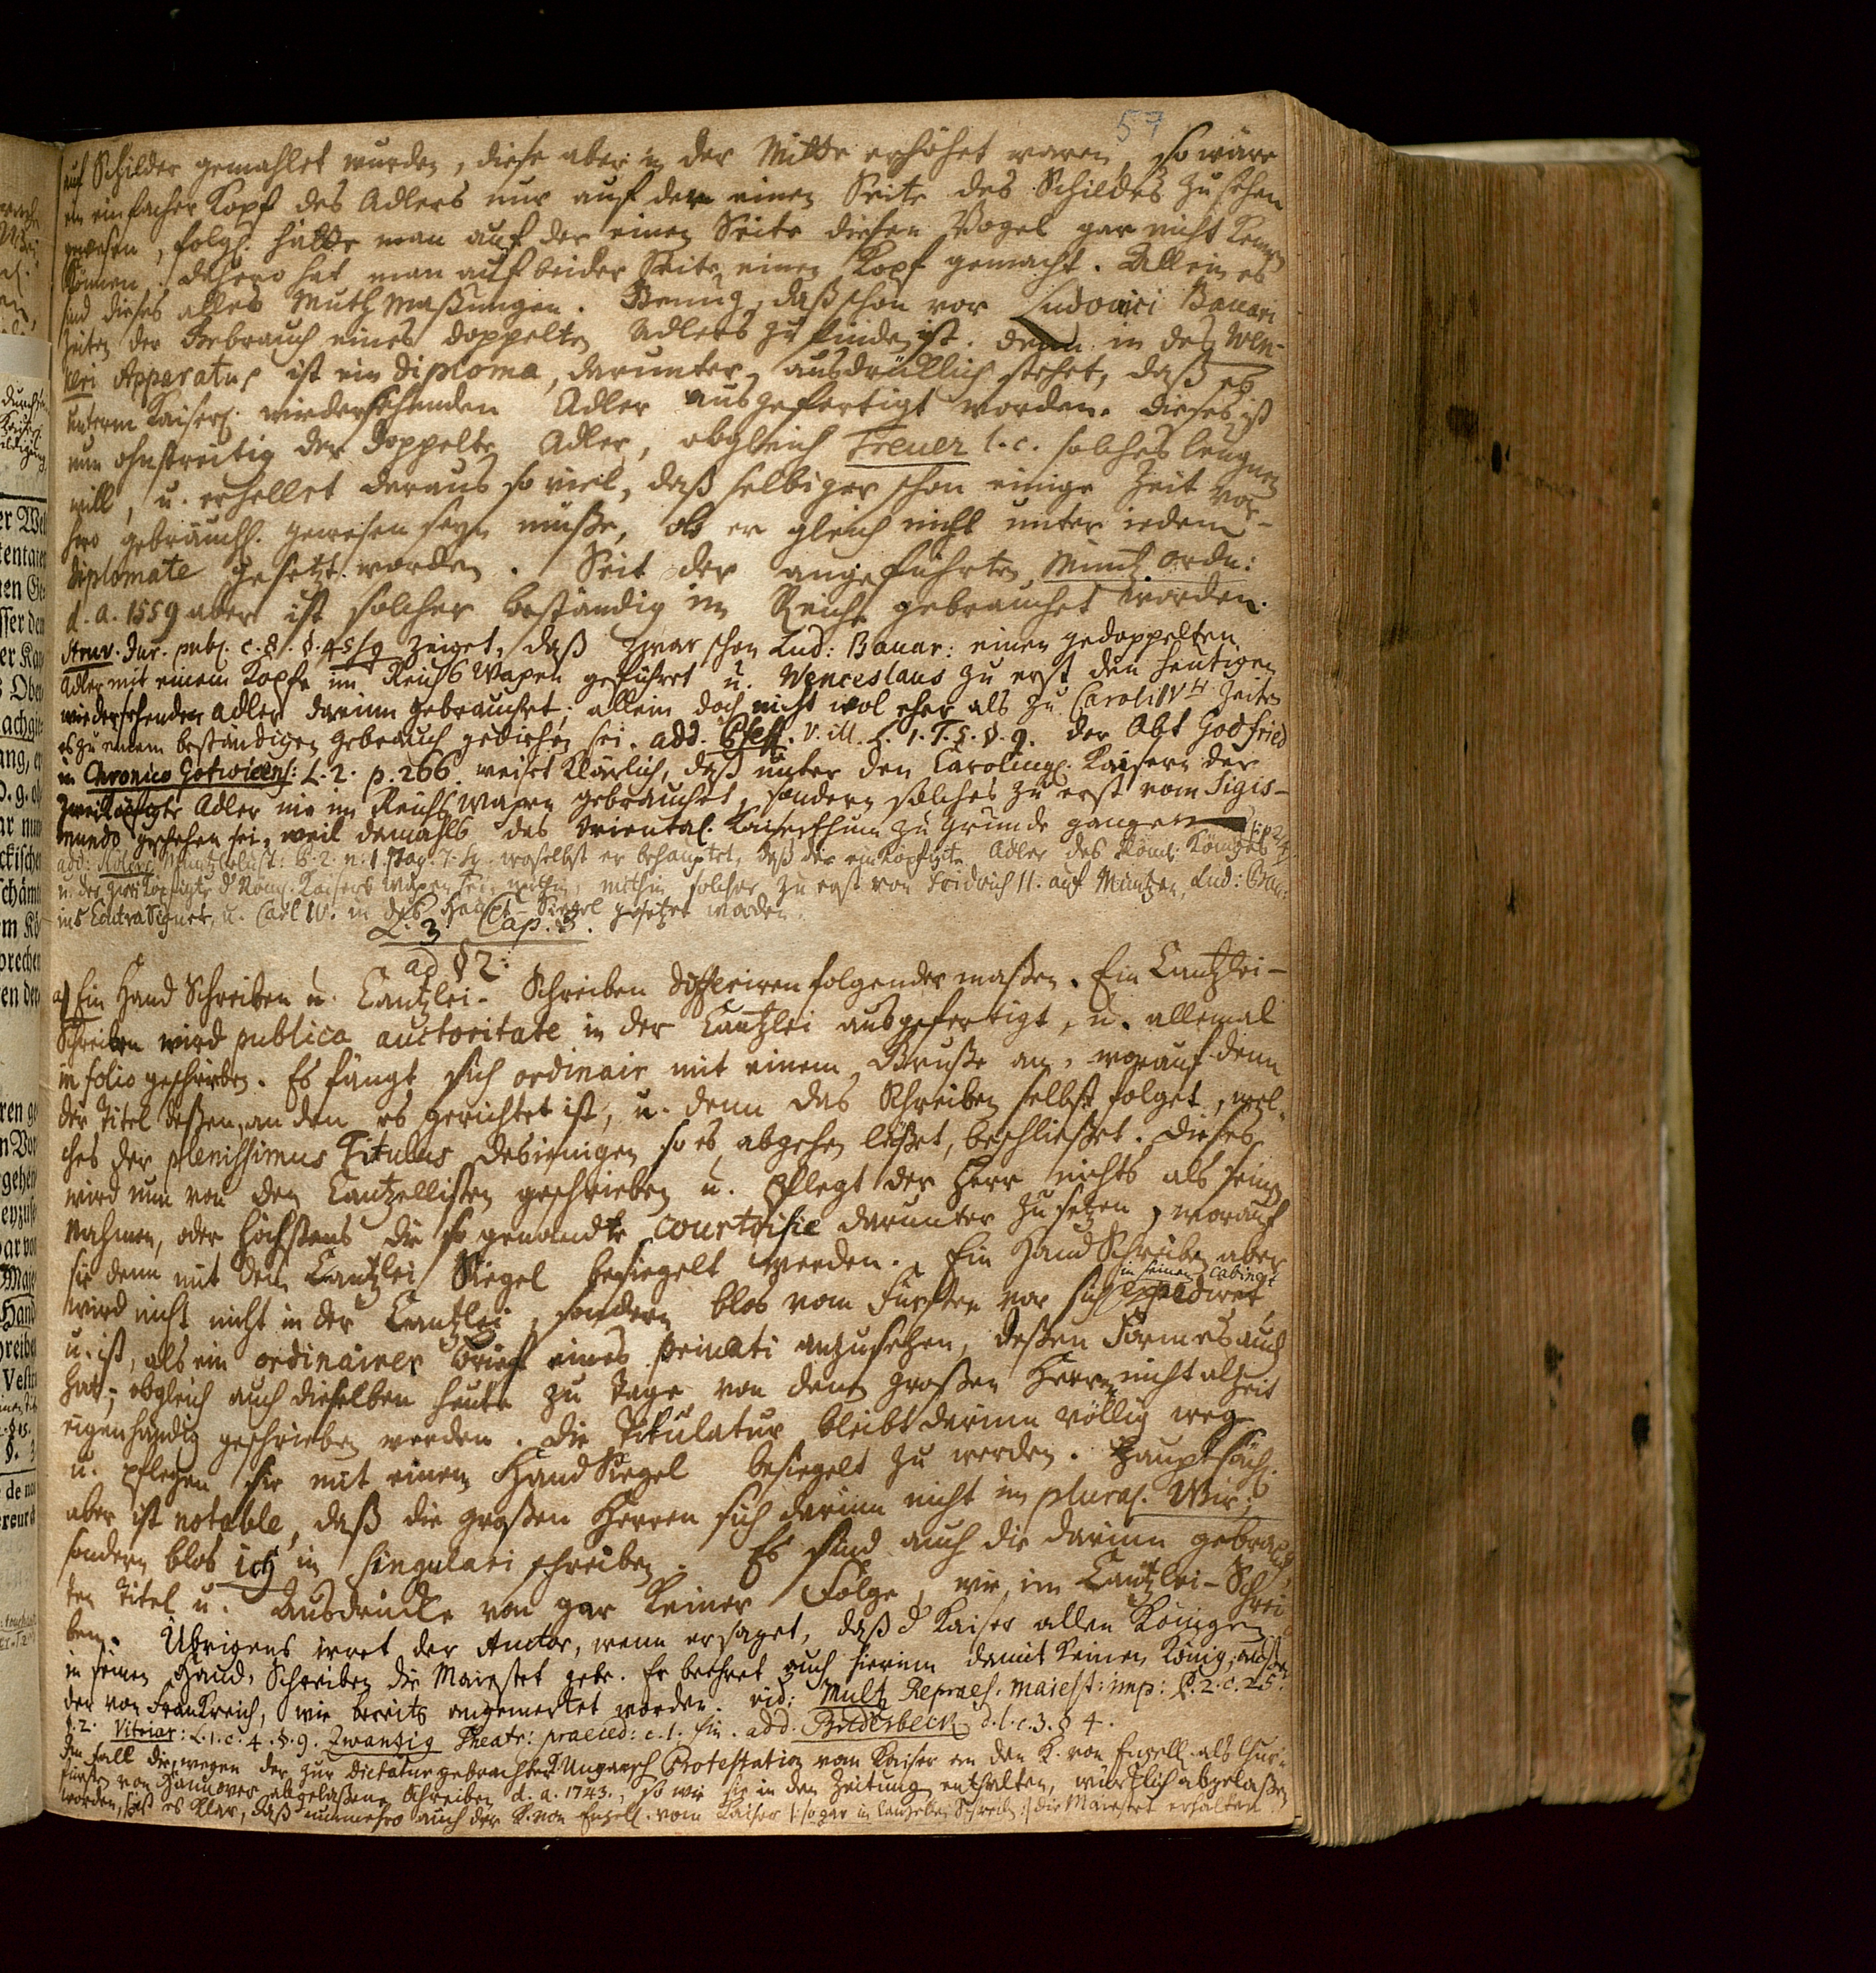 57
auf Schilder gemahlet wurden, diese aber in der Mitte erhöhet waren, so wäre
ein einfacher Kopf des Adlers nur auf der einen Seite des Schildes zu sehen
gewesen, folgl. hätte man auf der einen Seite diesen Vogel gar nicht kennen
können. dahero hat man auf beider Seite einen Kopf gemacht. Allein es
sind dieses alles Muthmaßungen. Genug, daß schon vor Ludovici Bavari
Zeiten der Gebrauch eines doppelten Adlers zu finden ist. denn in des Wen-
keri Apparatu ist ein diploma, darunter ausdrücklich stehet, daß es
unterm Kaiserl. wiedersehenden Adler ausgefertigt worden. dieses ist
nun ohnstreitig der doppelte Adler, obgleich Treuer l. c. solches leugnen
will, u. erhellet daraus so viel, daß selbiger schon einige Zeit vor-
hero gebräuchl. gewesen seyn müße, ob er gleich nicht unter iedem
diplomate gesetzt worden. Seit der angeführten Müntz Ordn:
d. a. 1559 aber ist solcher beständig im Reiche gebrauchet worden.
Struv. Jur. publ. c. 8. §. 45 sq zeiget, daß zwar schon Lud: Bavar: einen gedoppelten
Adler mit einem Kopfe im Reichs Wapen geführet u. Wenceslaus zu erst den heutigen
wiedersehenden Adler darinn gebrauchet; allein doch nicht wol eher als zu Caroli V Zeiten
es zu einem beständigen Gebrauch gediehen sei. add. Pfeff. V. ill. L. 1. T. 5. §. 9. der Abt Godfried
in Chronico Gotwicens: L. 2. p. 266. weiset klärlich, daß unter den Carolingl. Kaisern der
zweiköpfigte Adler nie im Reichs Wapen gebrauchet, sondern solches zu erst vom Sigis-
mundo geschehen sei, weil damahls das Oriental. Kaiserthum zu Grunde gangen
add: Köler Müntzbelust: woselbst er behauptet, daß der einköpfigte Adler des Röml: Königs
u. der zweiköpfigte d Röml. Kaisers Wapen sei, mithin solcher zu erst von Fridrich II. auf Müntzen, Lud: Bav:
ins ContraSignet, u. Carl IV. in das Haupt-Siegel gesetzet worden.
L. 3. Cap. 3.
ad § 2:
a) Ein Hand Schreiben u. Cantzlei-Schreiben differiren folgender maßen. Ein Cantzlei-
Schreiben wird publica auctoritate in der Cantzlei ausgefertigt, u. allemal
in folio geschrieben. Es fängt sich ordinair mit einem Gruße an, worauf denn
der Titel deßen, an den es gerichtet ist, u. denn das Schreiben selbst folget, wel-
ches der plenissimus Titulus desienigen so es abgehen läßet, beschließet. Dieses
wird nun von den Cantzellisten geschrieben u. pflegt der Herr nichts als seinen
Nahmen, oder höchstens die so genandte Courtoisie darunter zu setzen, worauf
sie denn mit dem Cantzlei Siegel besiegelt werden. Ein Hand Schreiben aber
wird nicht nicht in der Cantzlei, sondern blos vom Fürsten vor sich in seinem Cabinet expediret
u. ist, als ein ordinairer Brief eines privati anzusehen, deßen Form es auch
hat; obgleich auch dieselben heute zu Tage von denen großen Herren nicht alzeit
eigenhändig geschrieben werden. Die Titulatur bleibt darinn völlig weg
u. pflegen sie mit einem Hand Siegel besiegelt zu werden. Hauptsächl.
aber ist notable, daß die großen Herren sich darinn nicht in plural. Wir,
sondern blos ich in singulari schreiben. Es sind auch die darinn gebrauch-
ten Titel u. Ausdrücke von gar keiner Folge, wie im Cantzlei-Schrei-
ben. Übrigens irret der Auctor, wenn er saget, daß d Kaiser allen Königen
in seinen Hand-Schreiben die Maiestet gebe. Er beehret auch hierinn damit keinen König, außer
den von Frankreich, wie bereits angemerket worden. vid: Multz Repraes. maiest: imp: P. 2. c. 25.
§. 2. Vitriar: L. 1. c. 4. §. 9. Zwantzig Theatr: praeced: c. 1. fin. add. Bilderbeck d. l. c. 3. § 4.
Im fall die wegen der zur Dictatur gebrachten Ungarsch Protestation vom Kaiser an den K. von Engell. als Chur-
fürsten von Hanover abgelaßene Schreiben d. a. 1743., so wie sie in den Zeitung enthalten, würcklich abgelaßen
worden, ist es klar, daß nunmehro auch der K. von Engell. vom Kaiser /: so gar in Cantzelley Schreiben :/ die Maiestet erhalten